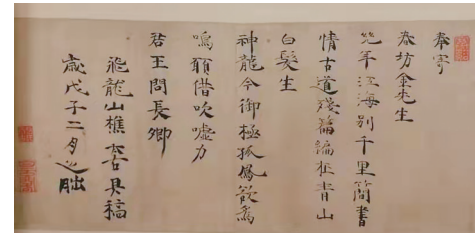 奉寄
春坊金先生
年江海別千里簡書
情古道殘篇在青山
白髮生
神龍今御極孤鳳欲為
鳴願借吹噓力
君王問長卿
飛龍山樵客具稿
歲戊子二月之朏